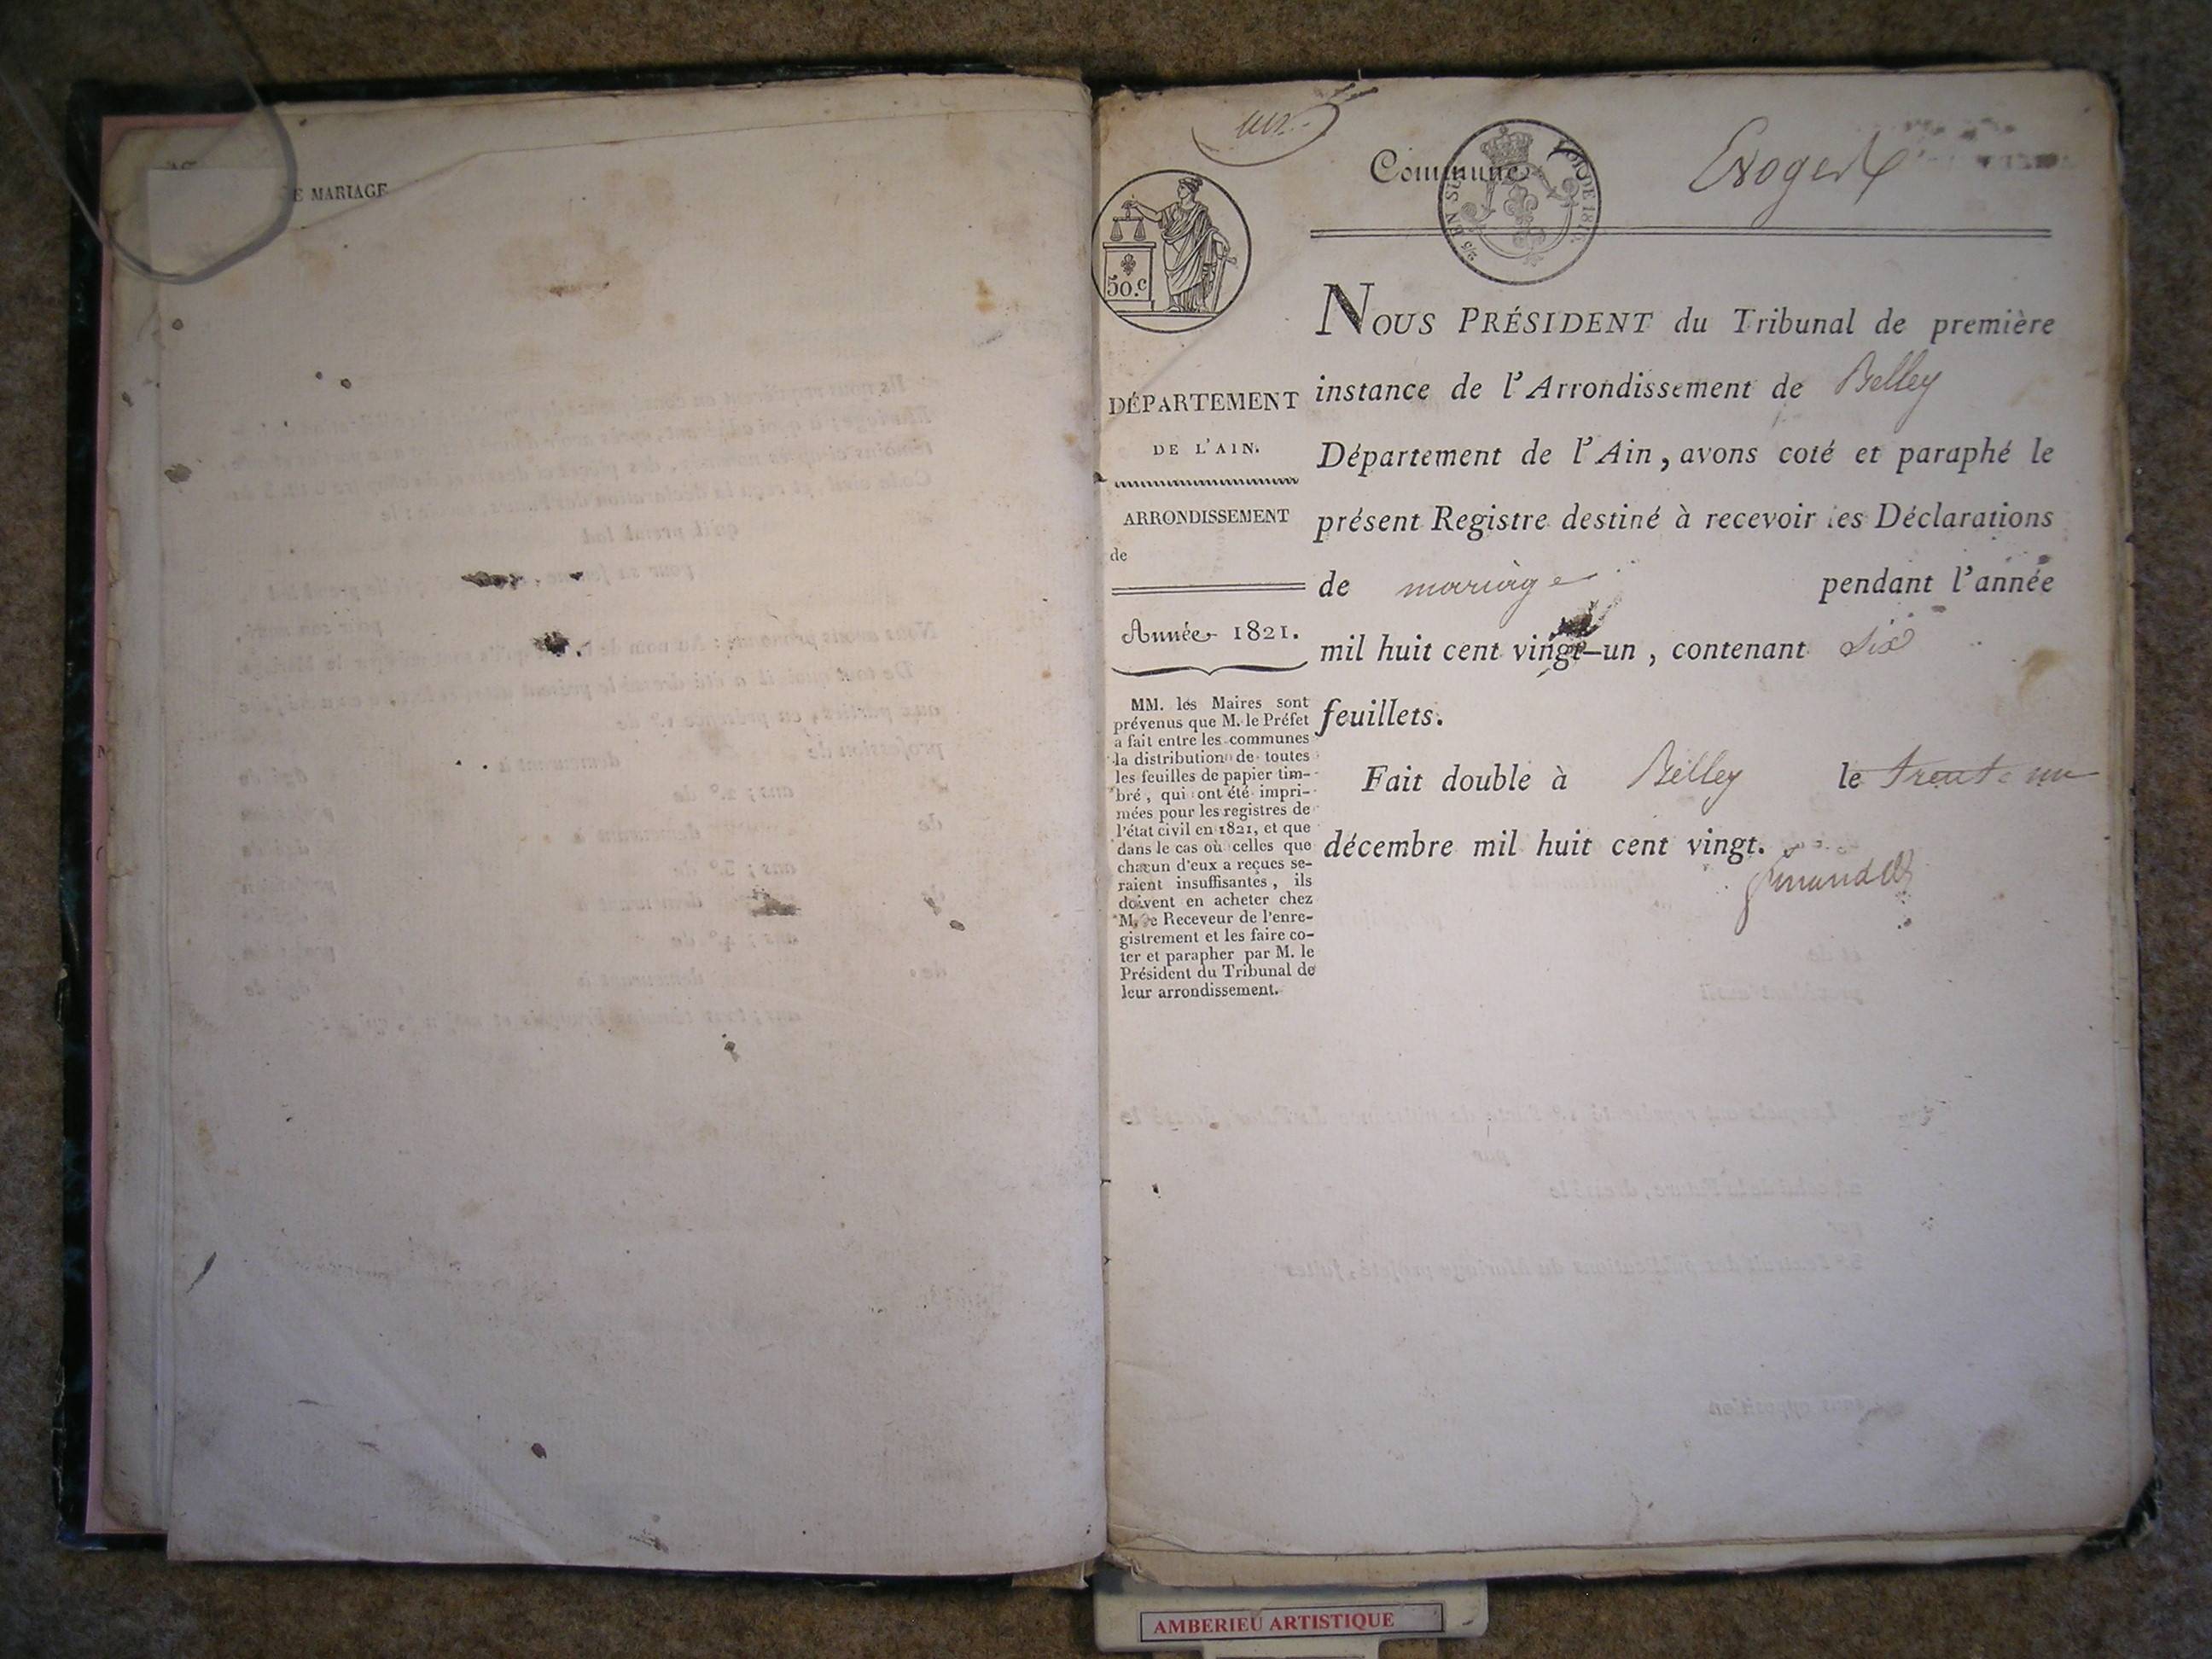 E MARIAGE
Commune
Evoges
50.c
NOUS PRÉSIDENT du Tribunal de première
instance de l'Arrondissement de Belley
Département de l'Ain, avons coté et paraphé le
présent Registre destiné à recevoir les Déclarations
de mariage pendant l'année
mil huit cent vingt-un, contenant six
feuillets.
Fait double à Belley le trente un
décembre mil huit cent vingt.
DÉPARTEMENT
DE L'AIN.
ARRONDISSEMENT
de
Année 1821.
MM. les Maires sont
prévenus que M. le Préfet
a fait entre les communes
la distribution de toutes
les feuilles de papier tim-
bré, qui ont été impri-
mées pour les registres de
l'état civil en 1821, et que
dans le cas où celles que
chacun d'eux a reçues se-
raient insuffisantes, ils
doivent en acheter chez
M. le Receveur de l'enre-
gistrement et les faire co-
ter et parapher par M. le
Président du Tribunal de
leur arrondissement.
AMBERIEU ARTISTIQUE